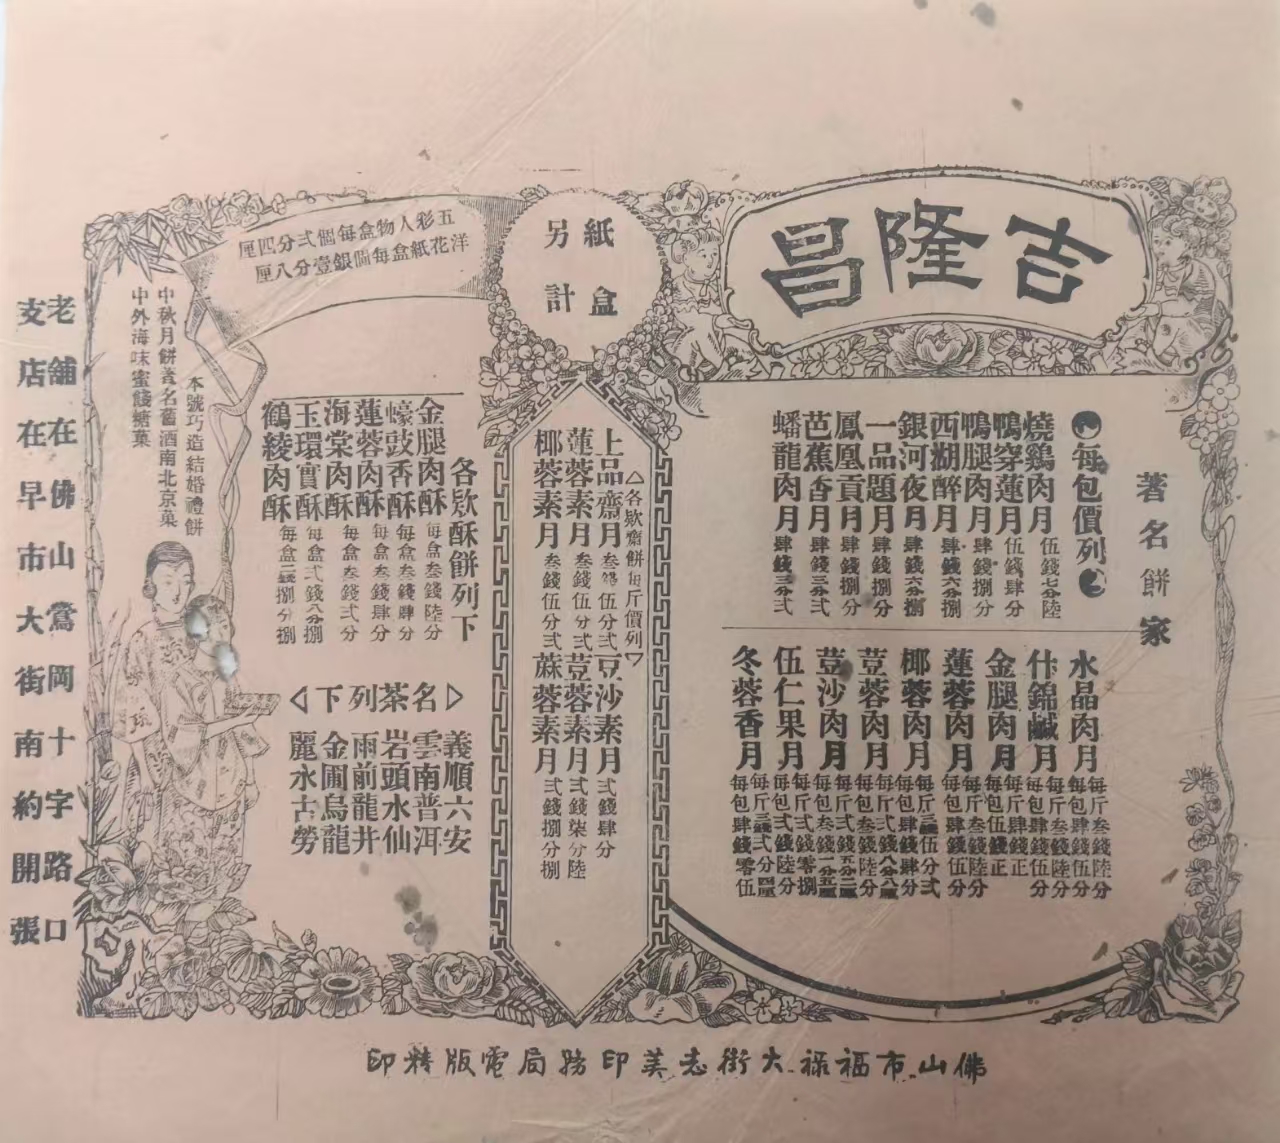 吉隆昌
著名餅家
每包價列
燒鷄肉月 伍錢七分陸
鴨穿蓮月 伍錢肆分
鴨腿肉月 肆錢捌分
西湖醉月 肆錢六分捌
銀河夜月 肆錢六分捌
一品題月 肆錢捌分
鳳凰貢月 肆錢捌分
芭蕉香月 肆錢三分弍
蟠龍肉月 肆錢三分弍
水晶肉月 每斤叁錢陸分 每包肆錢伍分
什錦鹹月 每斤叁錢陸分 每包肆錢伍分
金腿肉月 每斤肆錢正 每包伍錢正
蓮蓉肉月 每斤叁錢陸分 每包肆錢伍分
椰蓉肉月 每斤三錢伍分弍 每包肆錢肆分
荳蓉肉月 每斤弍錢八分八厘 每包叁錢陸分
荳沙肉月 每斤弍錢五分二厘 每包叁錢一分五厘
伍仁果月 每斤弍錢零捌 每包弍錢陸分
冬蓉香月 每斤三錢弍分四厘 每包肆錢零伍
紙盒
另計
五彩人物盒每個弍分四厘
洋花紙盒每個銀壹分八厘
各欵齋餅每斤價列
上品齋月 叁錢伍分弍
豆沙素月 弍錢肆分
蓮蓉素月 叁錢伍分弍
荳蓉素月 弍錢柒分陸
椰蓉素月 叁錢伍分弍
蔴蓉素月 弍錢捌分捌
各欵酥餅列下
金腿肉酥 每盒叁錢陸分
蠔豉香酥 每盒叁錢肆分
蓮蓉肉酥 每盒叁錢肆分
海棠肉酥 每盒叁錢弍分
玉環實酥 每盒弍錢八分捌
鶴綾肉酥 每盒二錢捌分捌
名茶列下
義順六安
雲南普洱
岩頭水仙
雨前龍井
金圃烏龍
麗永古勞
本號巧造結婚禮餅
中秋月餅著名舊酒南北京菓
中外海味蜜餞糖菓
老舖在佛山鶯岡十字路口
支店在早市大街南約開張
佛山市福祿大街志美印務局電版精印